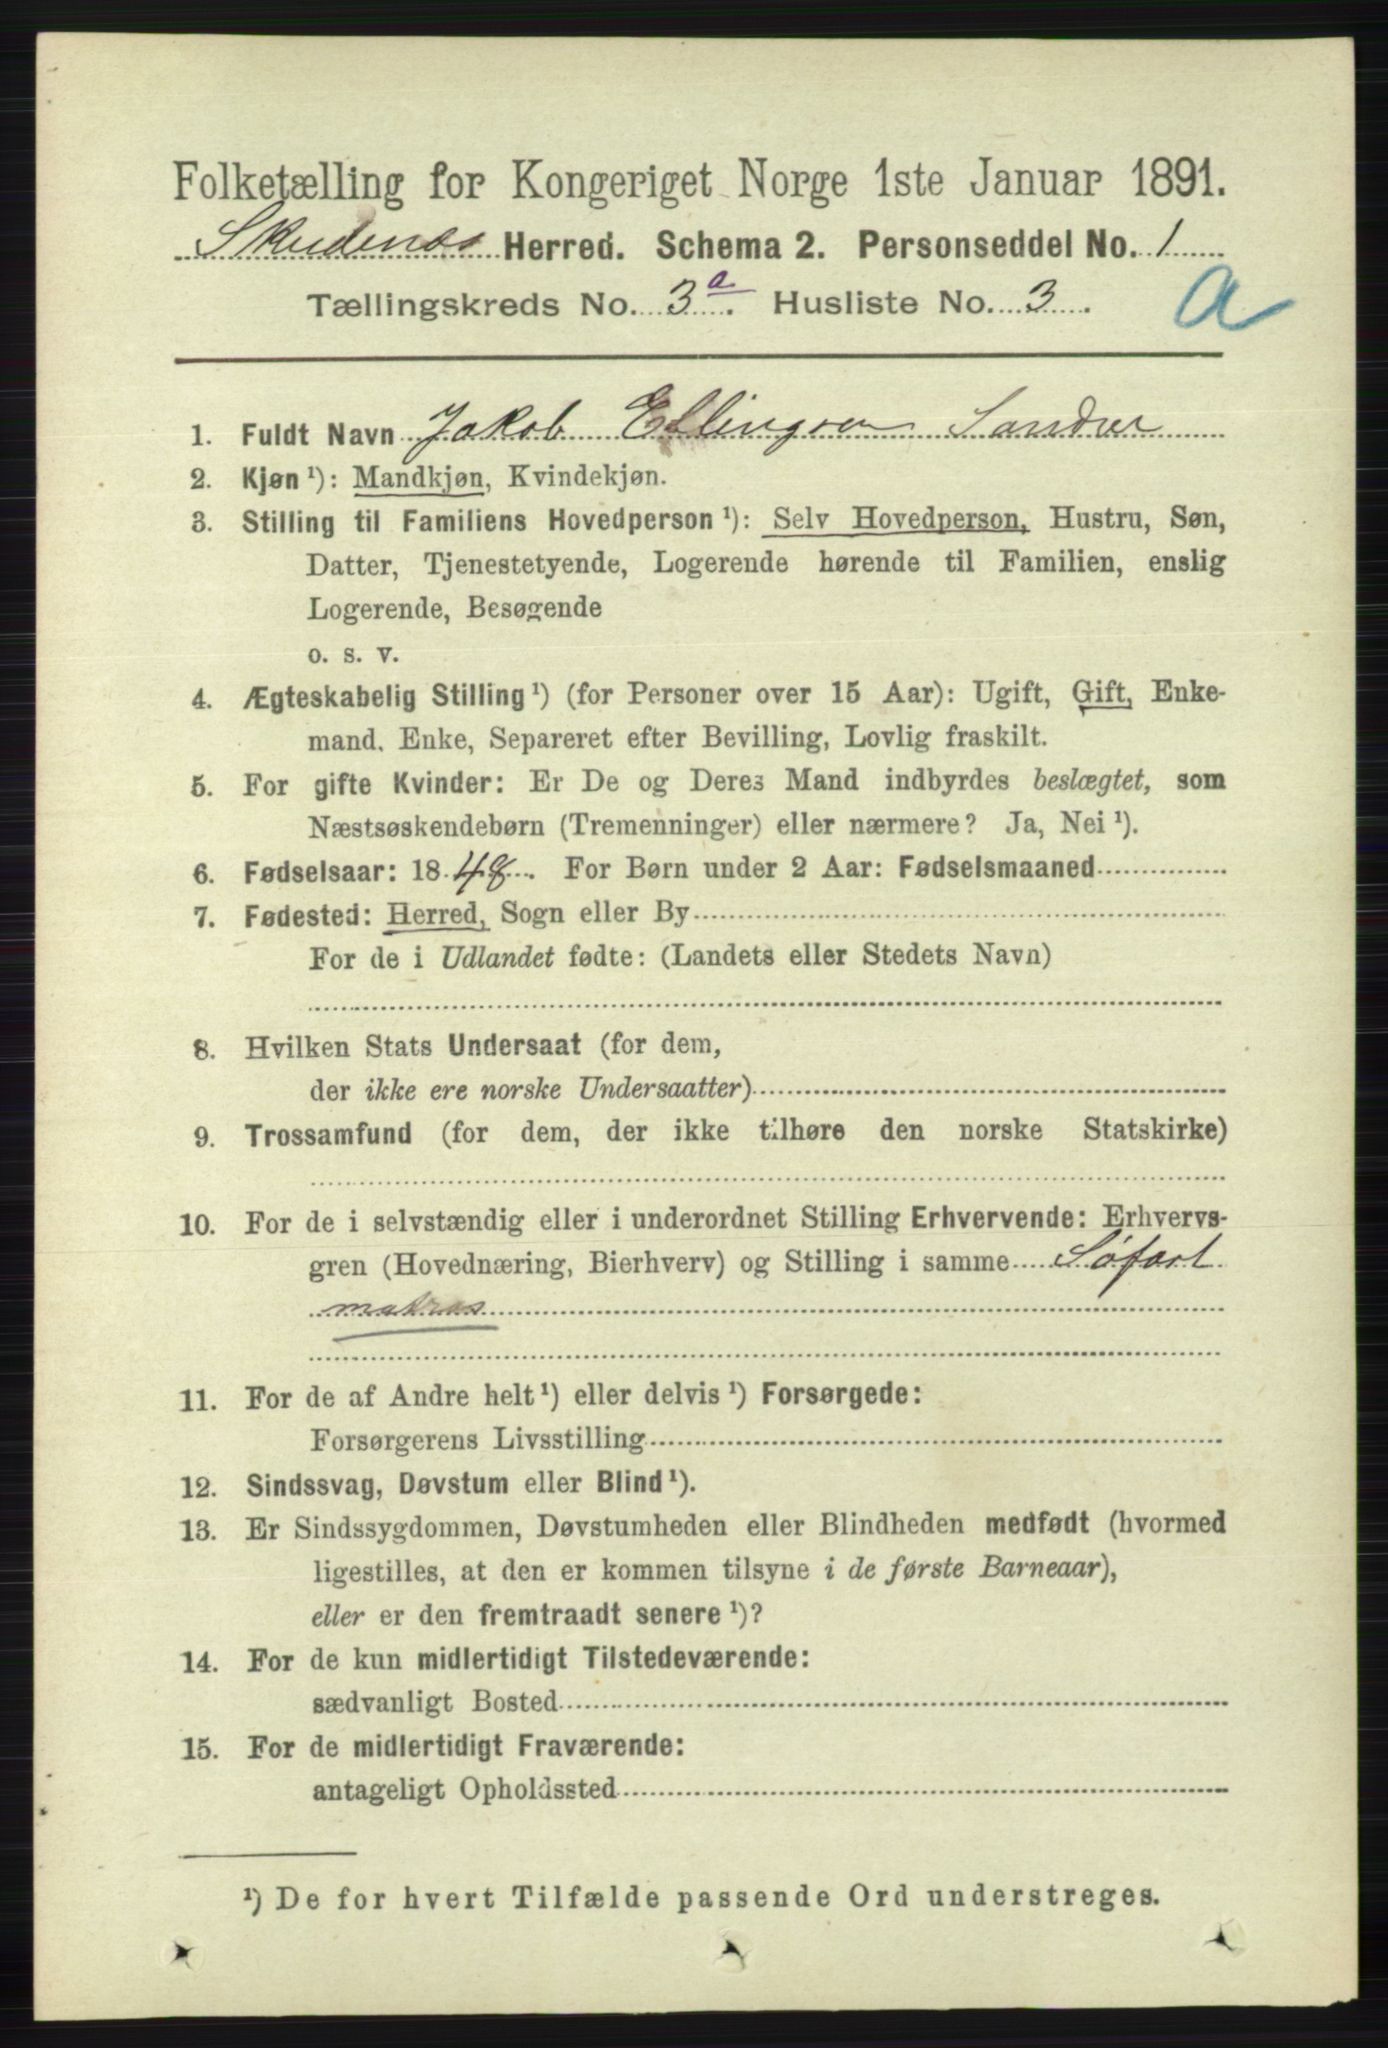 Folketælling for Kongeriget Norge 1ste Januar 1891.
Skudenes Herred. Schema 2. Personseddel No. 1
Tællingskreds No. 3a. Husliste No. 3.
a
1. Fuldt Navn Jakob Ellingsen
2. Kjøn ¹): Mandkjøn, Kvindekjøn.
3. Stilling til Familiens Hovedperson ¹): Selv Hovedperson, Hustru, Søn,
Datter, Tjenestetyende, Logerende hørende til Familien, enslig
Logerende, Besøgende
o. s. v.
4. Ægteskabelig Stilling ¹) (for Personer over 15 Aar): Ugift, Gift, Enke-
mand, Enke, Separeret efter Bevilling, Lovlig fraskilt.
5. For gifte Kvinder: Er De og Deres Mand indbyrdes beslægtet, som
Næstsøskendebørn (Tremenninger) eller nærmere? Ja, Nei ¹).
6. Fødselsaar: 1848. For Børn under 2 Aar: Fødselsmaaned
7. Fødested: Herred, Sogn eller By
For de i Udlandet fødte: (Landets eller Stedets Navn)
8. Hvilken Stats Undersaat (for dem,
der ikke ere norske Undersaatter)
9. Trossamfund (for dem, der ikke tilhøre den norske Statskirke)
10. For de i selvstændig eller i underordnet Stilling Erhvervende: Erhvervs-
gren (Hovednæring, Bierhverv) og Stilling i samme Søfart
matros
11. For de af Andre helt ¹) eller delvis ¹) Forsørgede:
Forsørgerens Livsstilling
12. Sindssvag, Døvstum eller Blind ¹).
13. Er Sindssygdommen, Døvstumheden eller Blindheden medfødt (hvormed
ligestilles, at den er kommen tilsyne i de første Barneaar),
eller er den fremtraadt senere ¹)?
14. For de kun midlertidigt Tilstedeværende:
sædvanligt Bosted
15. For de midlertidigt Fraværende:
antageligt Opholdssted
¹) De for hvert Tilfælde passende Ord understreges.